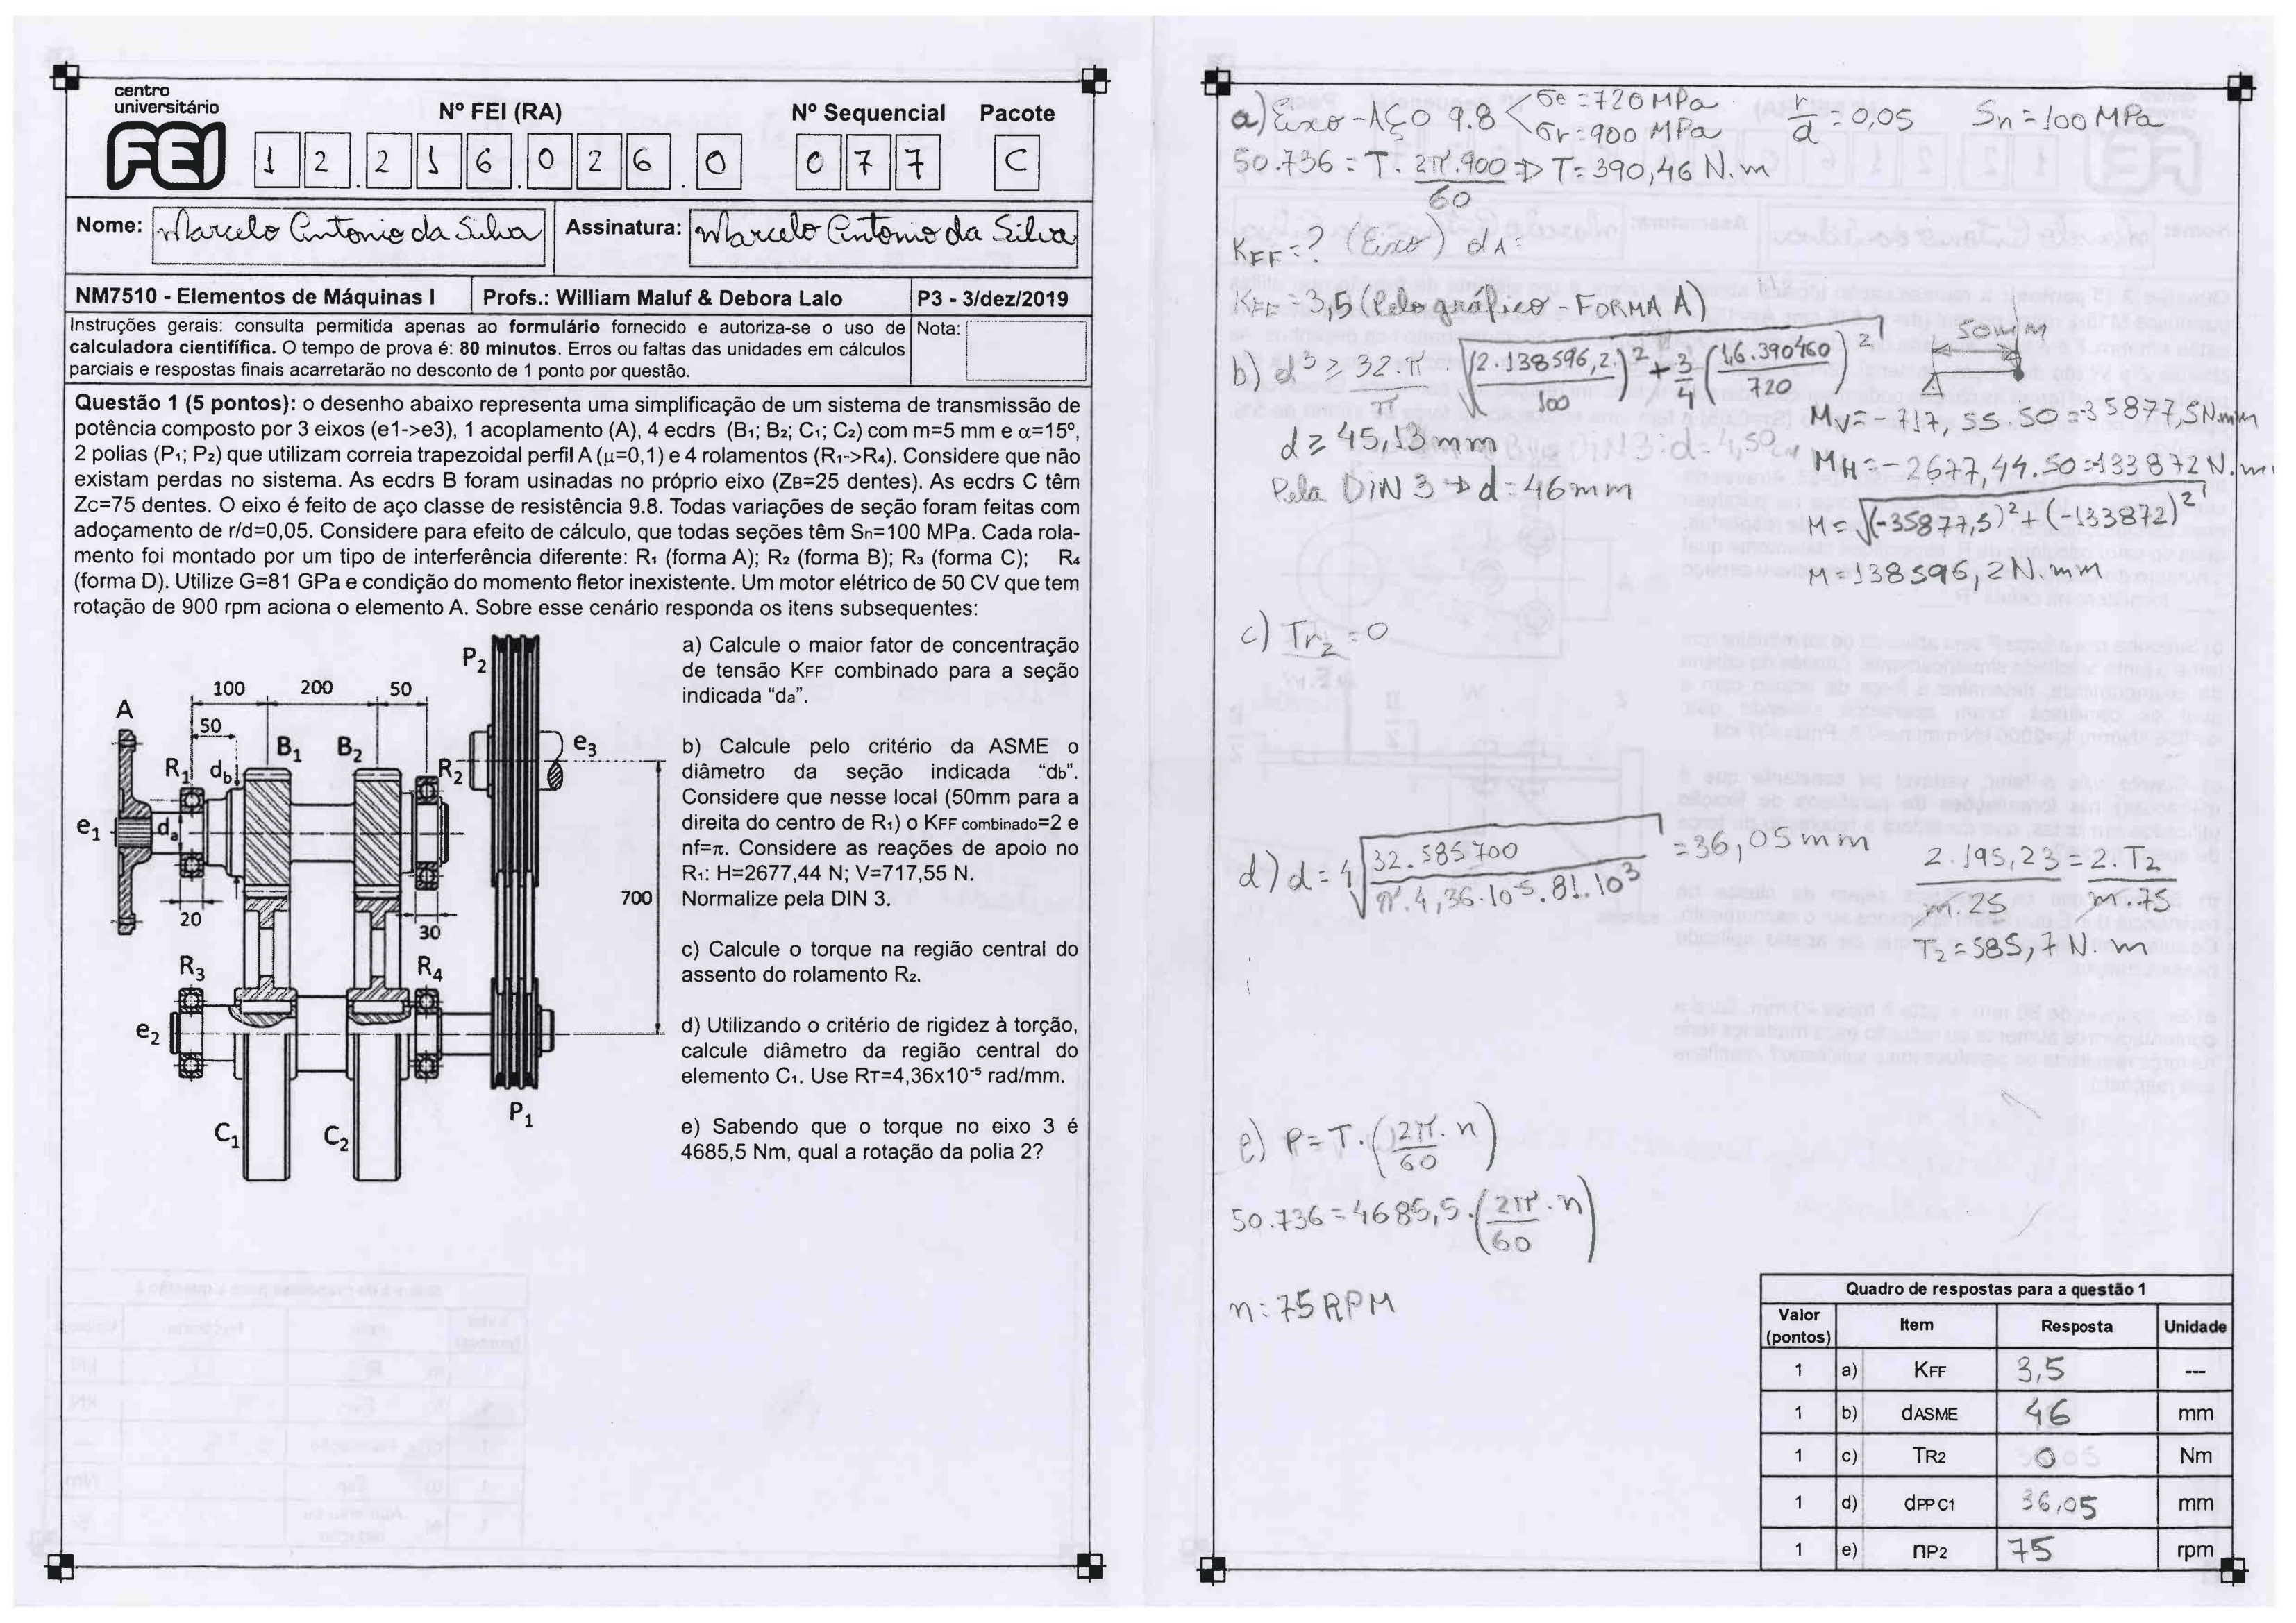 centro
universitário
FEI
Nº FEI (RA)
Nº Sequencial
Pacote
1 2 . 2 1 6 . 0 2 6 . 0
0 7 7
C
Nome: Marcelo Antonio da Silva
Assinatura: Marcelo Antonio da Silva
NM7510 - Elementos de Máquinas I
Profs.: William Maluf & Debora Lalo
P3 - 3/dez/2019
Instruções gerais: consulta permitida apenas ao formulário fornecido e autoriza-se o uso de
calculadora cientifífica. O tempo de prova é: 80 minutos. Erros ou faltas das unidades em cálculos
parciais e respostas finais acarretarão no desconto de 1 ponto por questão.
Nota:
Questão 1 (5 pontos): o desenho abaixo representa uma simplificação de um sistema de transmissão de
potência composto por 3 eixos (e1->e3), 1 acoplamento (A), 4 ecdrs (B1; B2; C1; C2) com m=5 mm e α=15º,
2 polias (P1; P2) que utilizam correia trapezoidal perfil A (μ=0,1) e 4 rolamentos (R1->R4). Considere que não
existam perdas no sistema. As ecdrs B foram usinadas no próprio eixo (ZB=25 dentes). As ecdrs C têm
Zc=75 dentes. O eixo é feito de aço classe de resistência 9.8. Todas variações de seção foram feitas com
adoçamento de r/d=0,05. Considere para efeito de cálculo, que todas seções têm Sn=100 MPa. Cada rola-
mento foi montado por um tipo de interferência diferente: R1 (forma A); R2 (forma B); R3 (forma C); R4
(forma D). Utilize G=81 GPa e condição do momento fletor inexistente. Um motor elétrico de 50 CV que tem
rotação de 900 rpm aciona o elemento A. Sobre esse cenário responda os itens subsequentes:
P2
100 200 50
A
50
B1 B2
e3
R1 db R2
e1 da
20
30
700
R3 R4
e2
P1
C1 C2
a) Calcule o maior fator de concentração
de tensão KFF combinado para a seção
indicada “da”.
b) Calcule pelo critério da ASME o
diâmetro da seção indicada “db”.
Considere que nesse local (50mm para a
direita do centro de R1) o KFF combinado=2 e
nf=π. Considere as reações de apoio no
R1: H=2677,44 N; V=717,55 N.
Normalize pela DIN 3.
c) Calcule o torque na região central do
assento do rolamento R2.
d) Utilizando o critério de rigidez à torção,
calcule diâmetro da região central do
elemento C1. Use RT=4,36x10-5 rad/mm.
e) Sabendo que o torque no eixo 3 é
4685,5 Nm, qual a rotação da polia 2?
a) Eixo - AÇO 9.8 < σe = 720 MPa
σr = 900 MPa
r/d = 0,05 Sn = 100 MPa
50.736 = T . 2π.900/60 => T = 390,46 N.m
KFF = ? (Eixo) dA =
KFF = 3,5 (Pelo gráfico - FORMA A)
50mm
b) d³ ≥ 32.π/π . √(2.138596,2./100)² + 3/4 (1,6.390460/720)²
Mv = -717,55.50 = -35877,5N.mm
d ≥ 45,13mm
MH = -2677,44.50 = -133872 N.m
Pela DIN 3 → d = 46mm
M = √(-35877,5)² + (-133872)²
M = 138596,2 N.mm
c) Tr2 = 0
d) d = 4√32.585700/π.4,36.10-5.81.10³ = 36,05 mm
2.195,23/m.25 = 2.T2/m.75
T2 = 585,7 N.m
e) P = T.(2π/60 . n)
50.736 = 4685,5.(2π/60 . n)
n = 75 RPM
Quadro de respostas para a questão 1
Valor (pontos) Item Resposta Unidade
1 a) KFF 3,5 ---
1 b) dASME 46 mm
1 c) TR2 0 Nm
1 d) dPP C1 36,05 mm
1 e) nP2 75 rpm